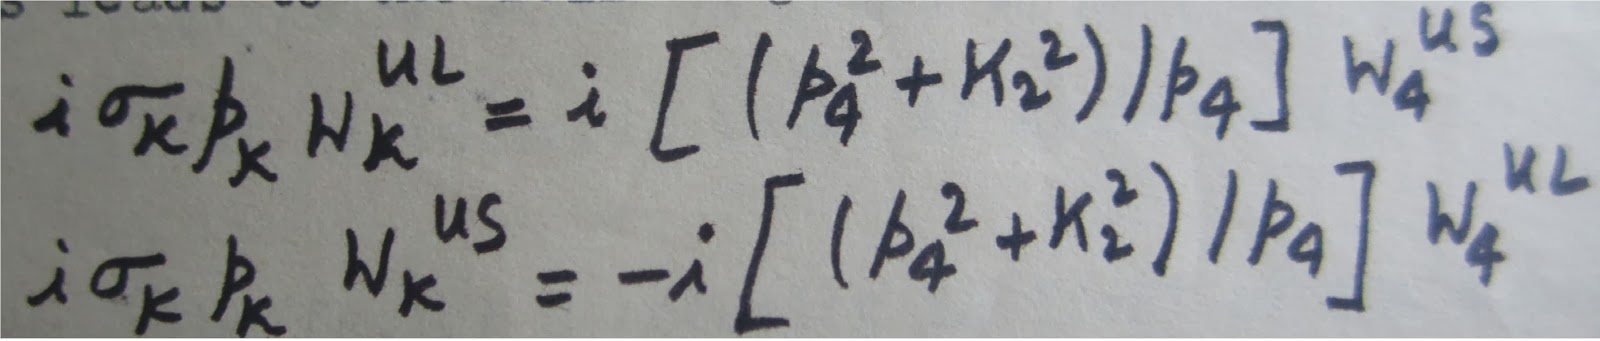 i σ_K p_K W_K^{UL} = i [ (p_4^2 + K_2^2) / p_4 ] W_4^{US}
i σ_K p_K W_K^{US} = -i [ (p_4^2 + K_2^2) / p_4 ] W_4^{UL}